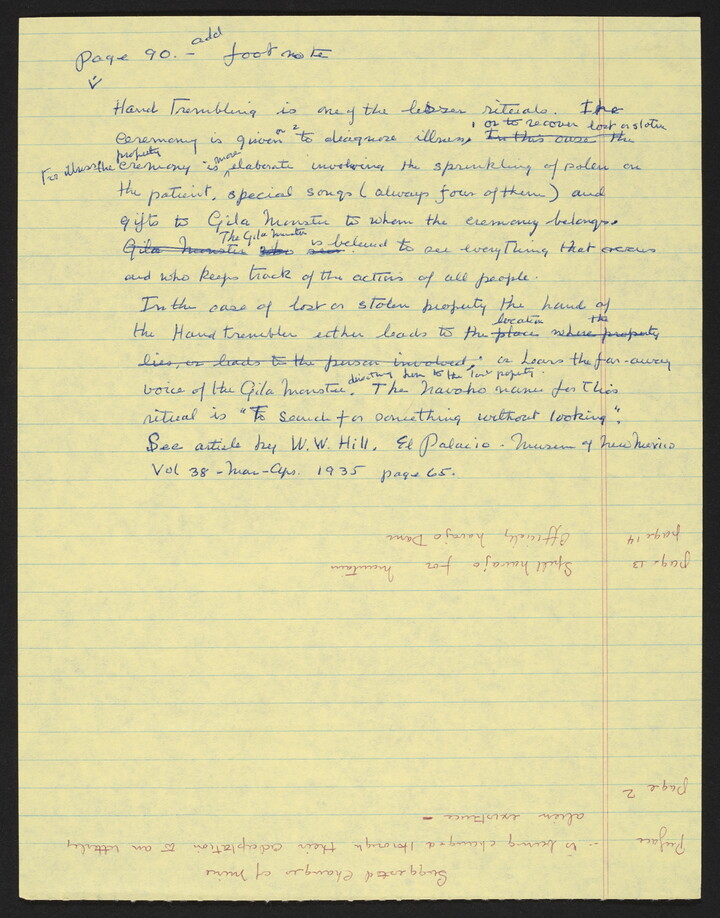 Page 90. - add footnote
Hand Trembling is one of the lesser rituals. The
ceremony is given or 2 to diagnose illness, or to recover lost or stolen property In this case the
For illness the ceremony is more elaborate involving the sprinkling of polen on
the patient, special songs (always four of them) and
gifts to Gila Monster to whom the ceremony belongs.
Gila Monster who sees The Gila Monster is believed to see everything that occurs
and who keeps track of the actions of all people.
In the case of lost or stolen property the hand of
the Hand trembler either leads to the place where property location the
lies, or leads to the person involved, or hears the far-away
voice of the Gila Monster directing him to the lost property. The Navaho name for this
ritual is "To search for something without looking".
See article by W.W. Hill, El Palacio - Museum of New Mexico
Vol 38 - Mar-Apr. 1935 page 65.
Suggested Changes of mine
Preface - is being changed through their adaptation to an utterly
alien existence -
page 2
page 13 Spell navajo for mountain
page 14 Officially navajo Dam